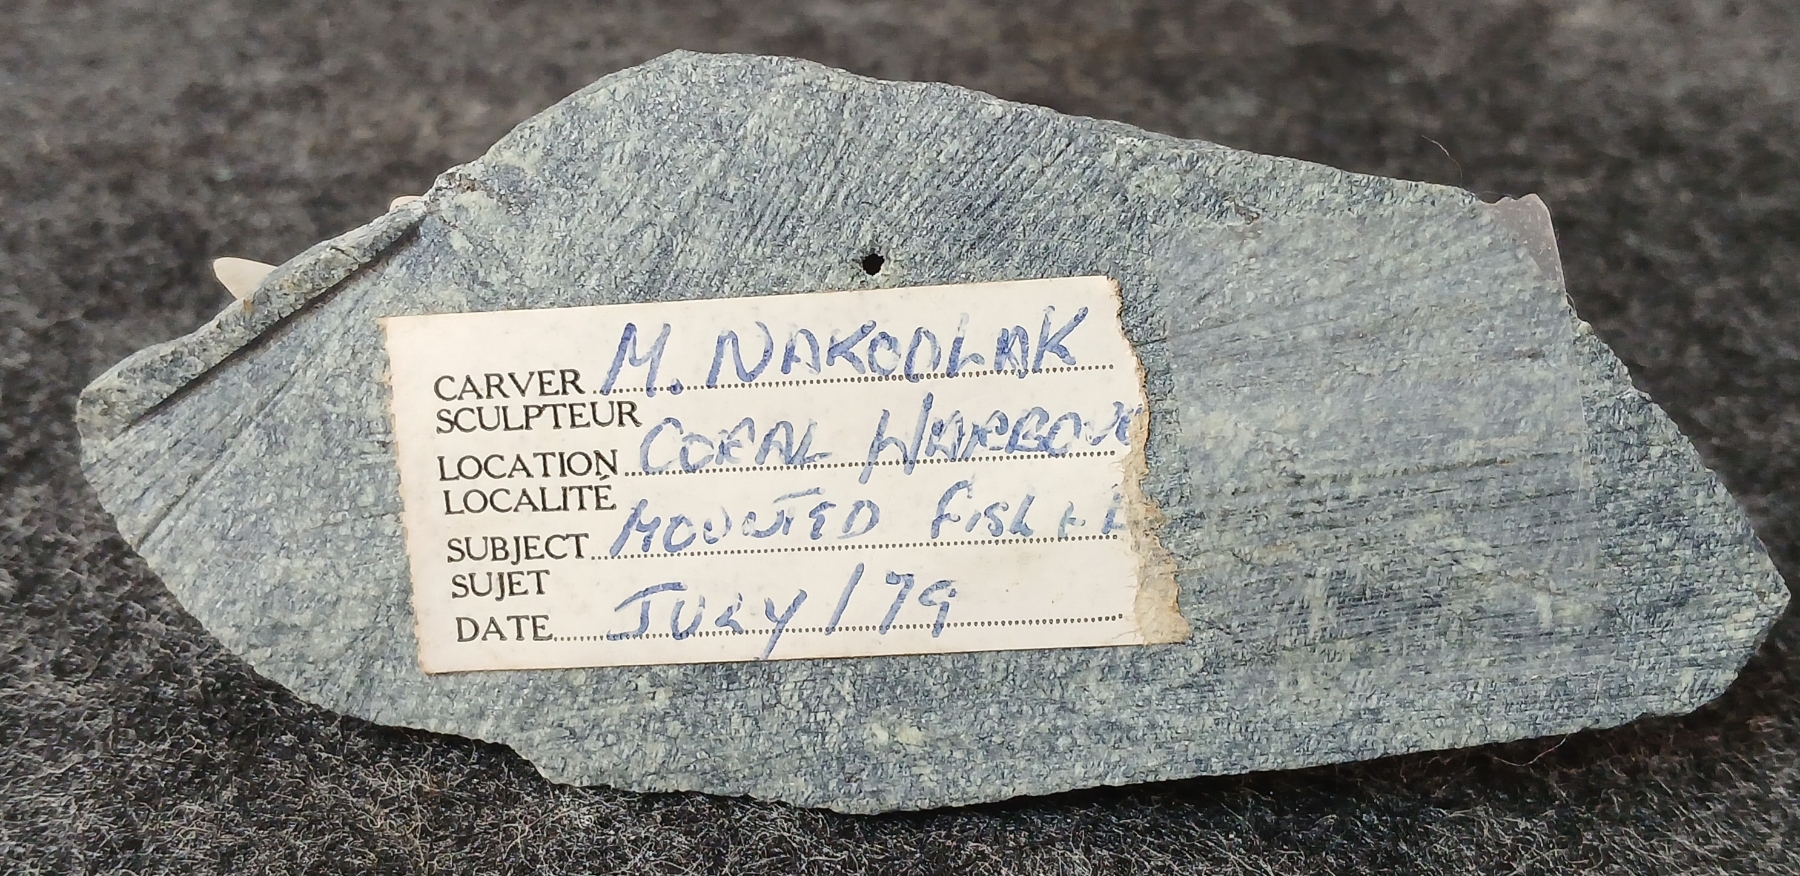 CARVER M. NAKOOLAK
SCULPTEUR
LOCATION CORAL HARBOUR
LOCALITÉ
SUBJECT MOUNTED FISH
SUJET
DATE JULY/79